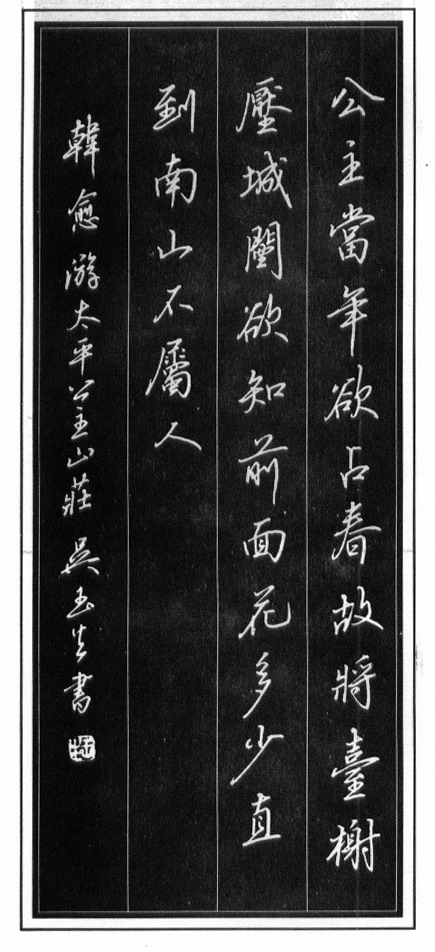 公主當年欲占春故將臺榭
壓城闉欲知前面花多少直
到南山不屬人
韓愈游太平公主山莊 吳玉生書